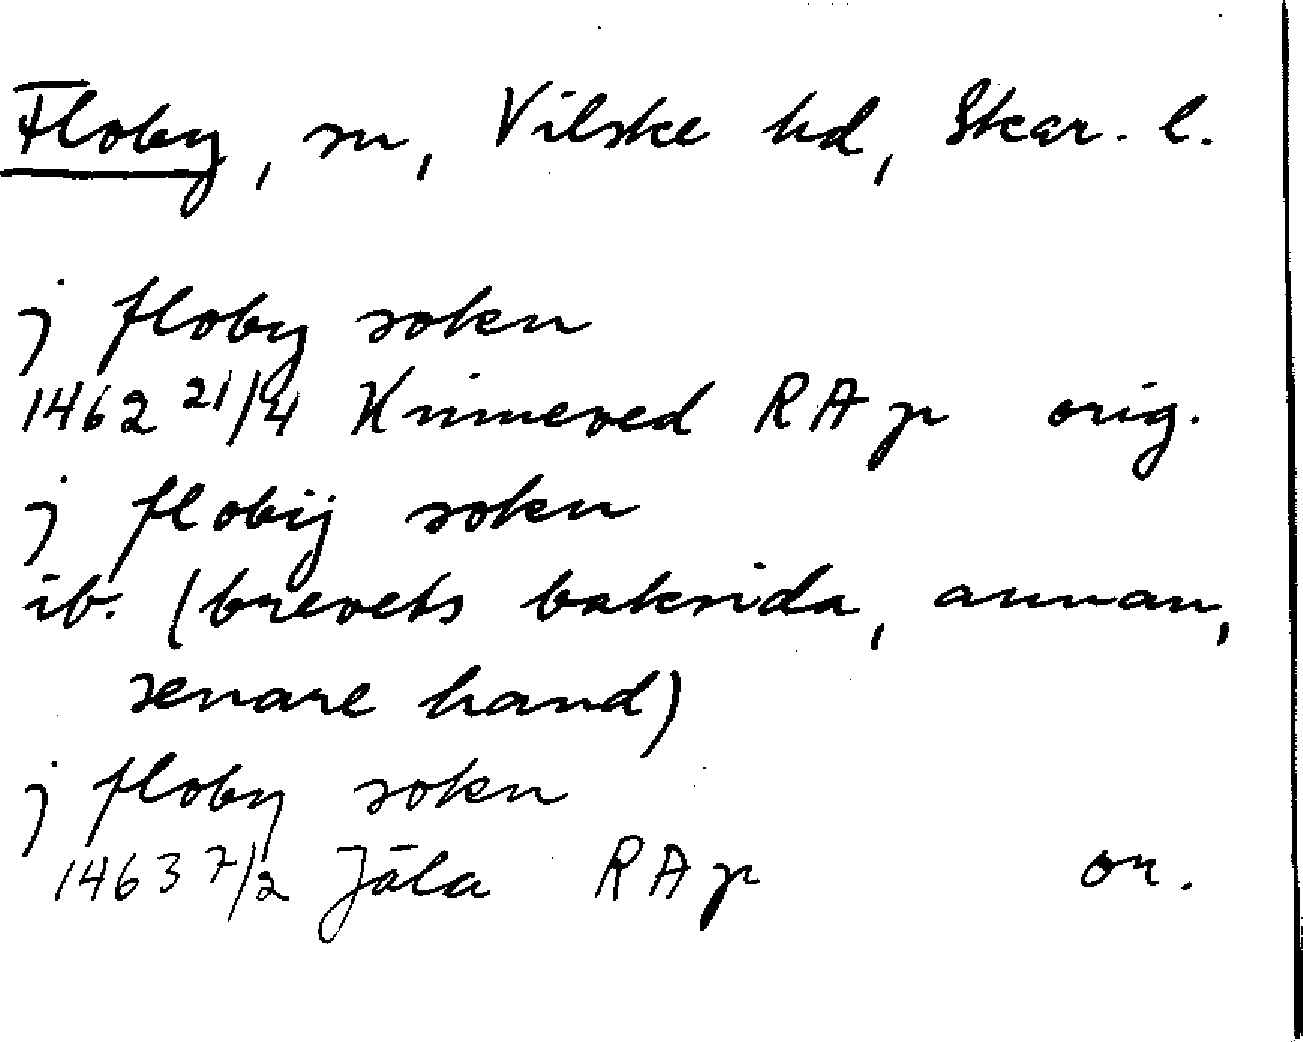 Floby, sn, Vilske hd, Skar. l.
j floby sokn
1462 21/4 Kinneved RA p orig.
j flobÿ sokn
ib. (brevets baksida, annan,
senare hand)
j floby sokn
1463 7/2 Jäla RA p or.